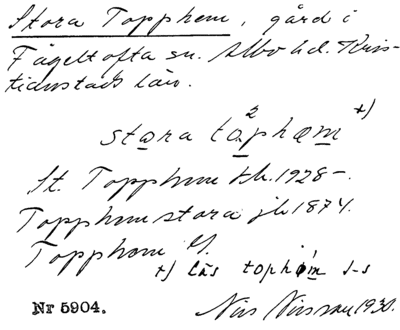 Stora Topphem, gård i
Fågeltofta sn. Albo hd. Kris-
tianstads län.
stora tåphem +)
St. Topphem tk. 1928-.
Topphem stora jb 1874.
Topphem
+) läs tophem s-s
Nr 5904. Nils Nilsson 1930.